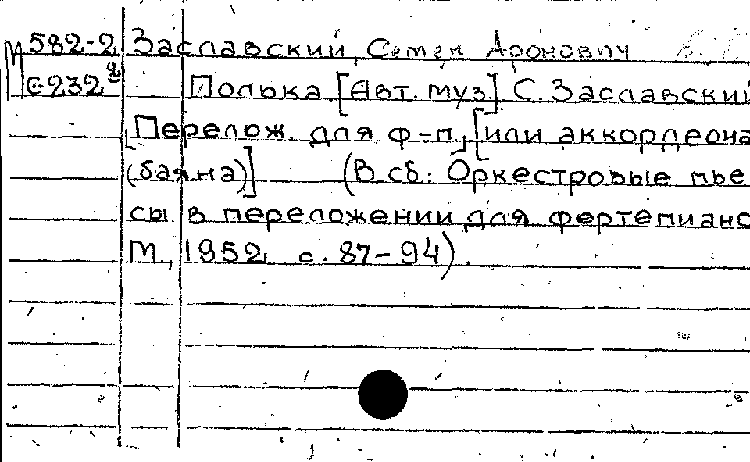 М 582-2 Заславский, Семен Аронович
С-232 Полька [Авт. муз] С. Заславский
[Перелож. для ф-п., [или аккордеона
(баяна)] (В сб: Оркестровые пье
сы в переложении для фертепиано
М, 1952 с. 87-94).